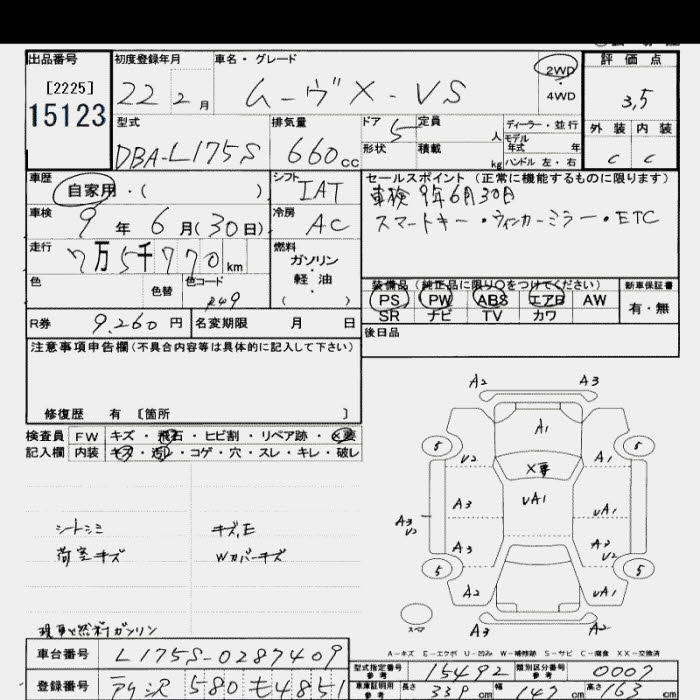 出品番号 初度登録年月 車名・グレード 2WD 評価点
[2225] 22 2月 ムーヴX-VS ・ 3.5
15123 4WD
型式 排気量 ドア 5 定員 人 ディーラー・並行 外装 内装
DBA-L175S 660cc 形状 積載 kg モデル年式 年 C C
ハンドル 左・右
車歴 シフト セールスポイント (正常に機能するものに限ります)
自家用・( ) IAT 車検 9年6月30日
車検 9年 6月(30日) 冷房 AC スマートキー・ウィンカーミラー・ETC
走行 7万5千770km 燃料
ガソリン・軽油
( )
色 色替 色コード 装備品 (純正品に限り○をつけてください) 新車保証書
R49 PS PW ABS エアB AW 有・無
SR ナビ TV カワ
R券 9.260円 名変期限 月 日 後日品
注意事項申告欄(不具合内容等は具体的に記入して下さい)
修復歴 有 [箇所 ]
検査員 FW キズ・飛石・ヒビ割・リペア跡・X要
記入欄 内装 キズ・汚レ・コゲ・穴・スレ・キレ・破レ
シートシミ キズ,E
荷室キズ Wカバーキズ
A2 A3
A1
5 5
U2 A1
X要
A3 UA1 UA1
A3 U2
A3 A3 U2
5 5
A2 UA1
スペア A3 A2
A-キズ E-エクボ U-凹み W-補修跡 S-サビ C-腐食 XX-交換済
燃料ガソリン
車台番号 L175S-0287409
型式指定番号 参考 15492 類別区分番号 参考 0007
登録番号 580 も4851
車庫証明用 参考 長さ 339cm 幅 147cm 高さ 163cm